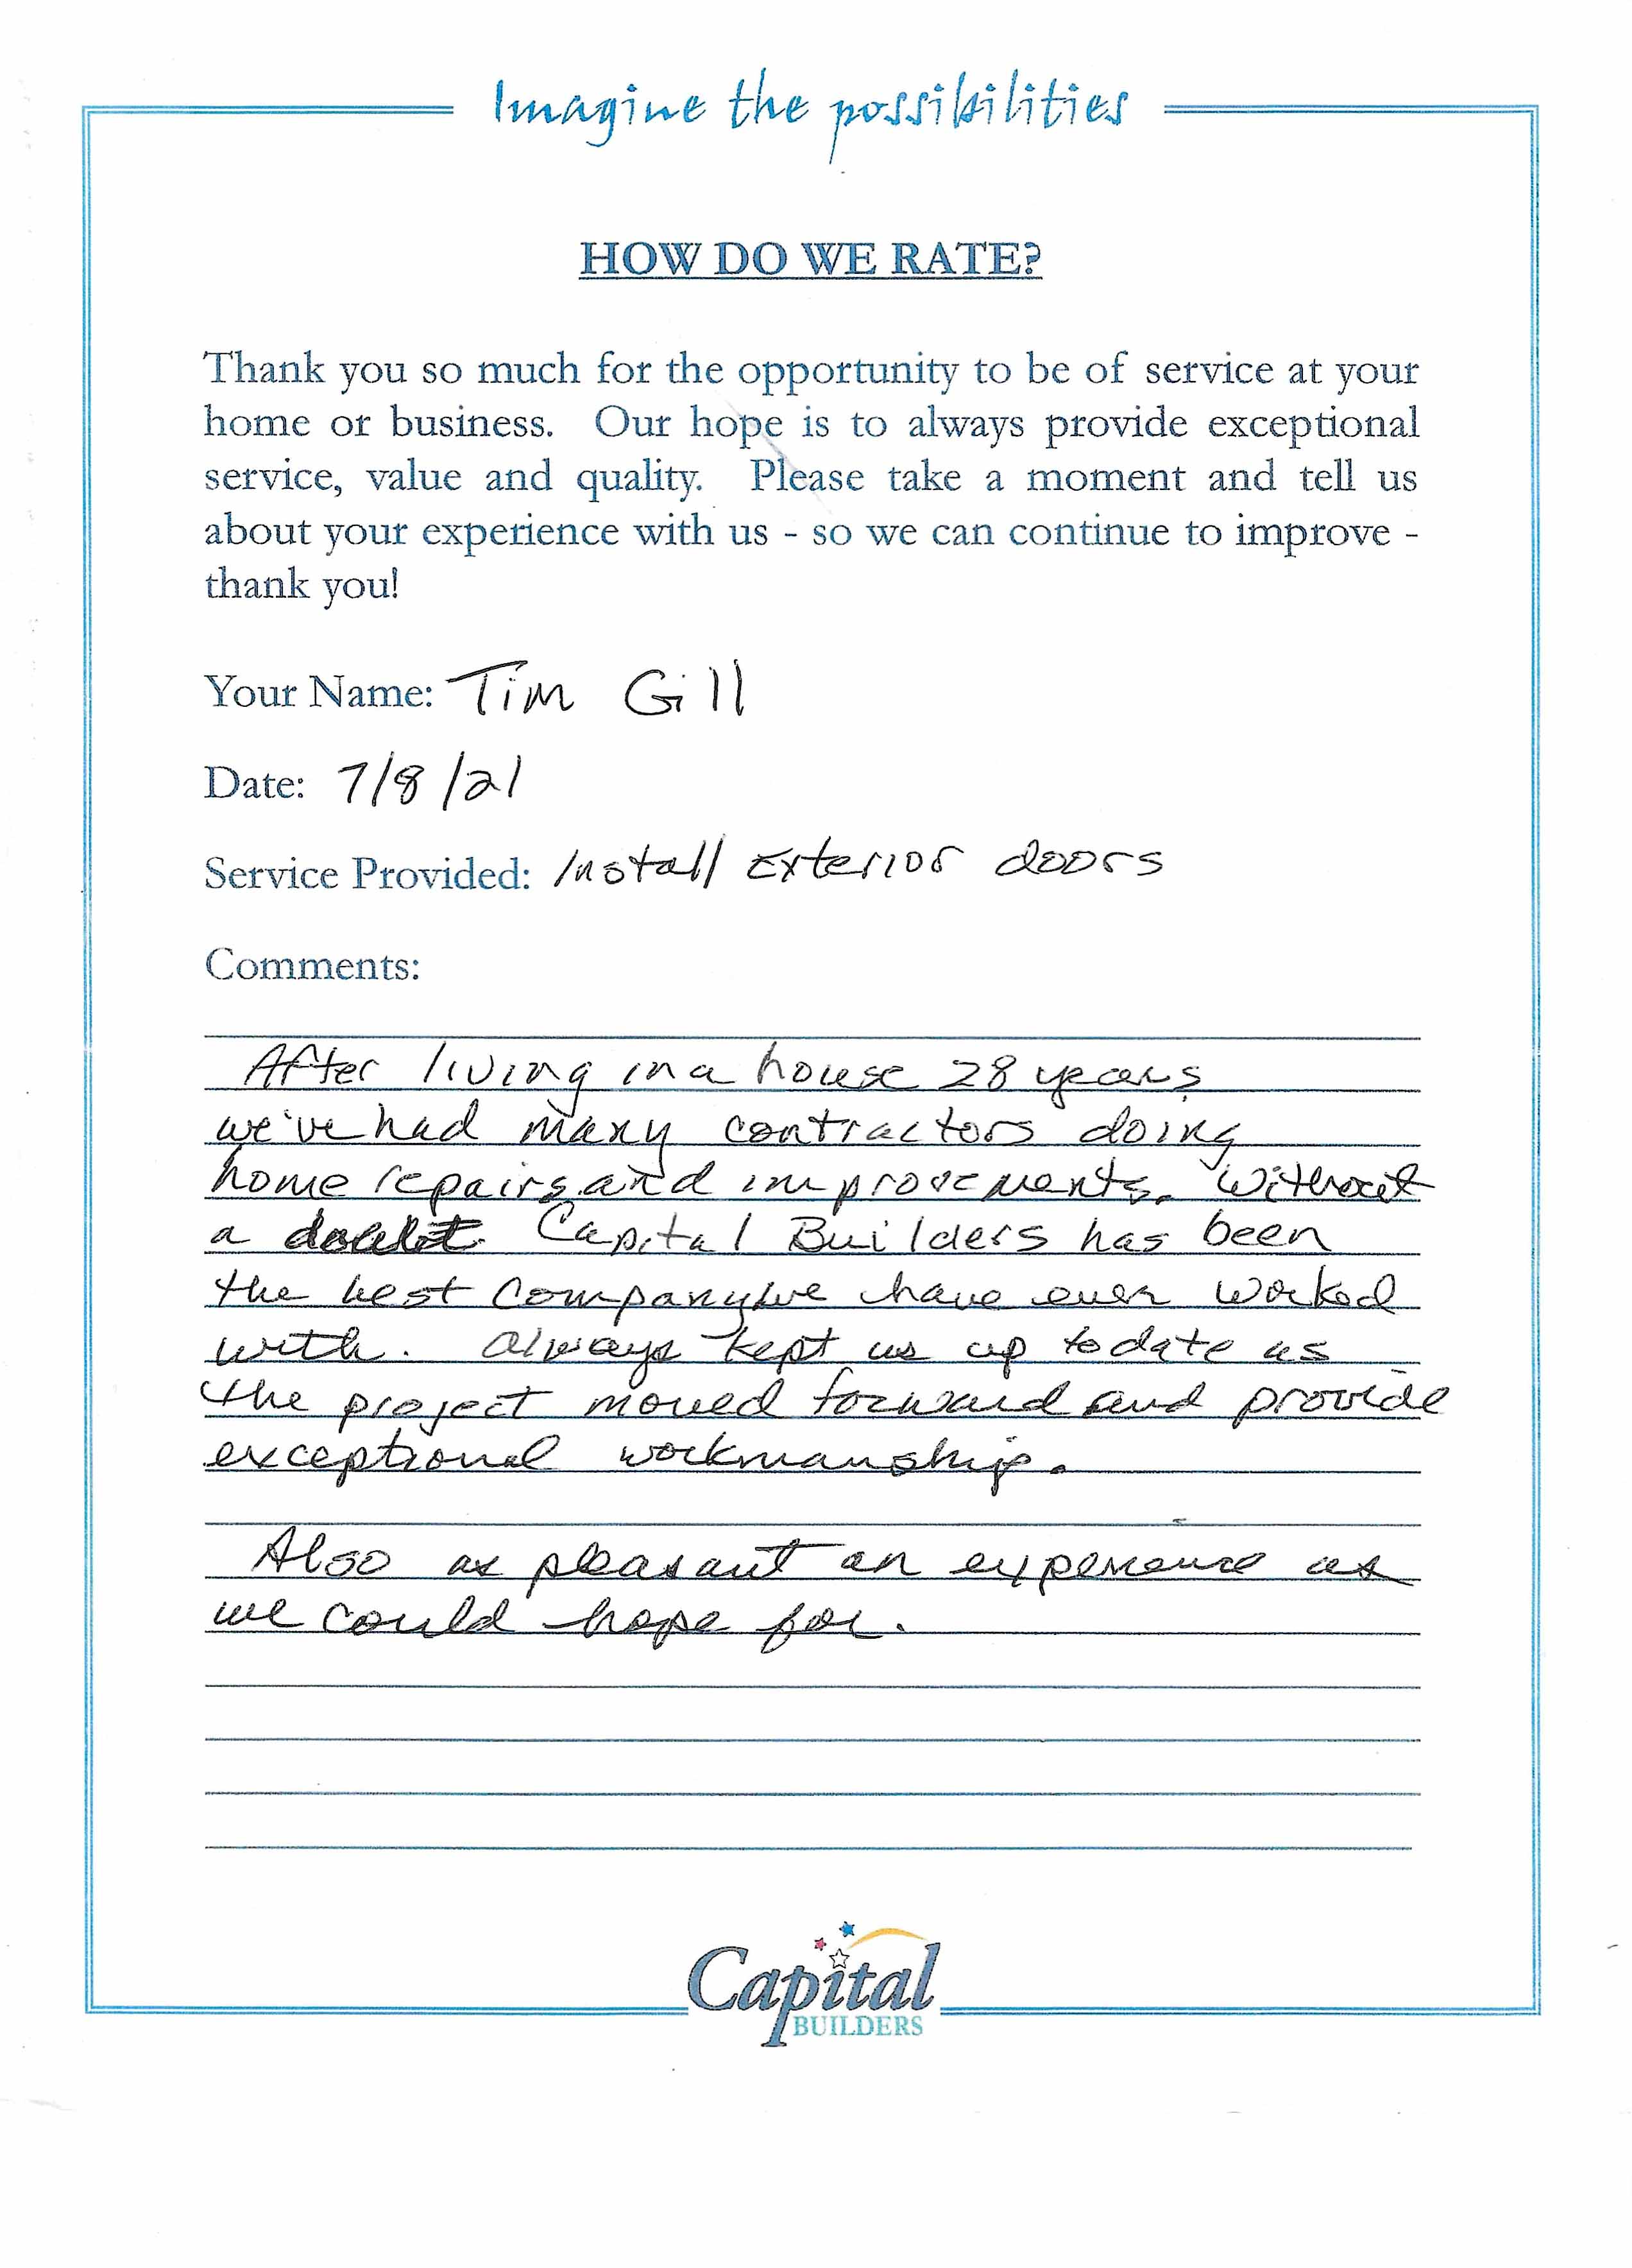 Imagine the possibilities
HOW DO WE RATE?
Thank you so much for the opportunity to be of service at your
home or business. Our hope is to always provide exceptional
service, value and quality. Please take a moment and tell us
about your experience with us - so we can continue to improve -
thank you!
Your Name: Tim Gill
Date: 7/8/21
Service Provided: Install Exterior doors
Comments:
After living in a house 28 years
we've had many contractors doing
home repairs and improvements. Without
a doubt Capital Builders has been
the best company we have ever worked
with. Always kept us up to date as
the project moved forward and provide
exceptional workmanship.
Also as pleasant an experience as
we could hope for.
Capital
BUILDERS